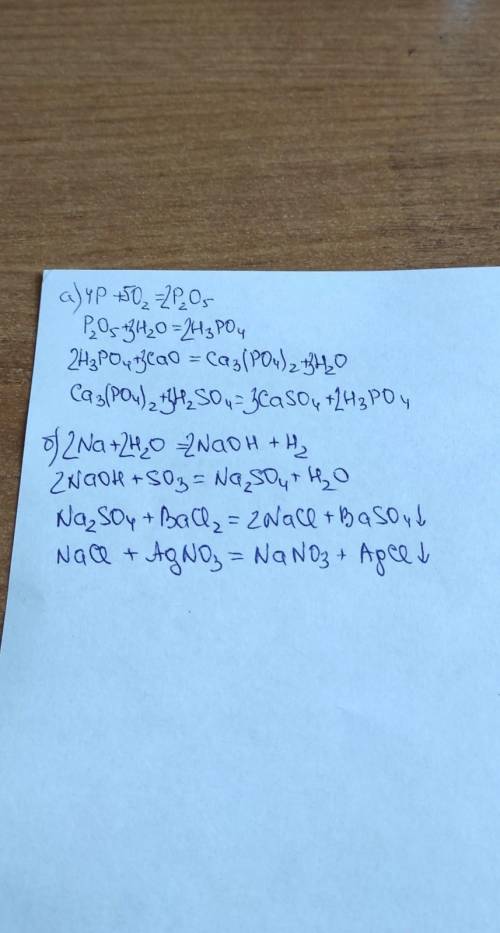 а) 4P + 5O₂ = 2P₂O₅
P₂O₅ + 3H₂O = 2H₃PO₄
2H₃PO₄ + 3CaO = Ca₃(PO₄)₂ + 3H₂O
Ca₃(PO₄)₂ + 3H₂SO₄ = 3CaSO₄ + 2H₃PO₄
б) 2Na + 2H₂O = 2NaOH + H₂
2NaOH + SO₃ = Na₂SO₄ + H₂O
Na₂SO₄ + BaCl₂ = 2NaCl + BaSO₄↓
NaCl + AgNO₃ = NaNO₃ + AgCl↓